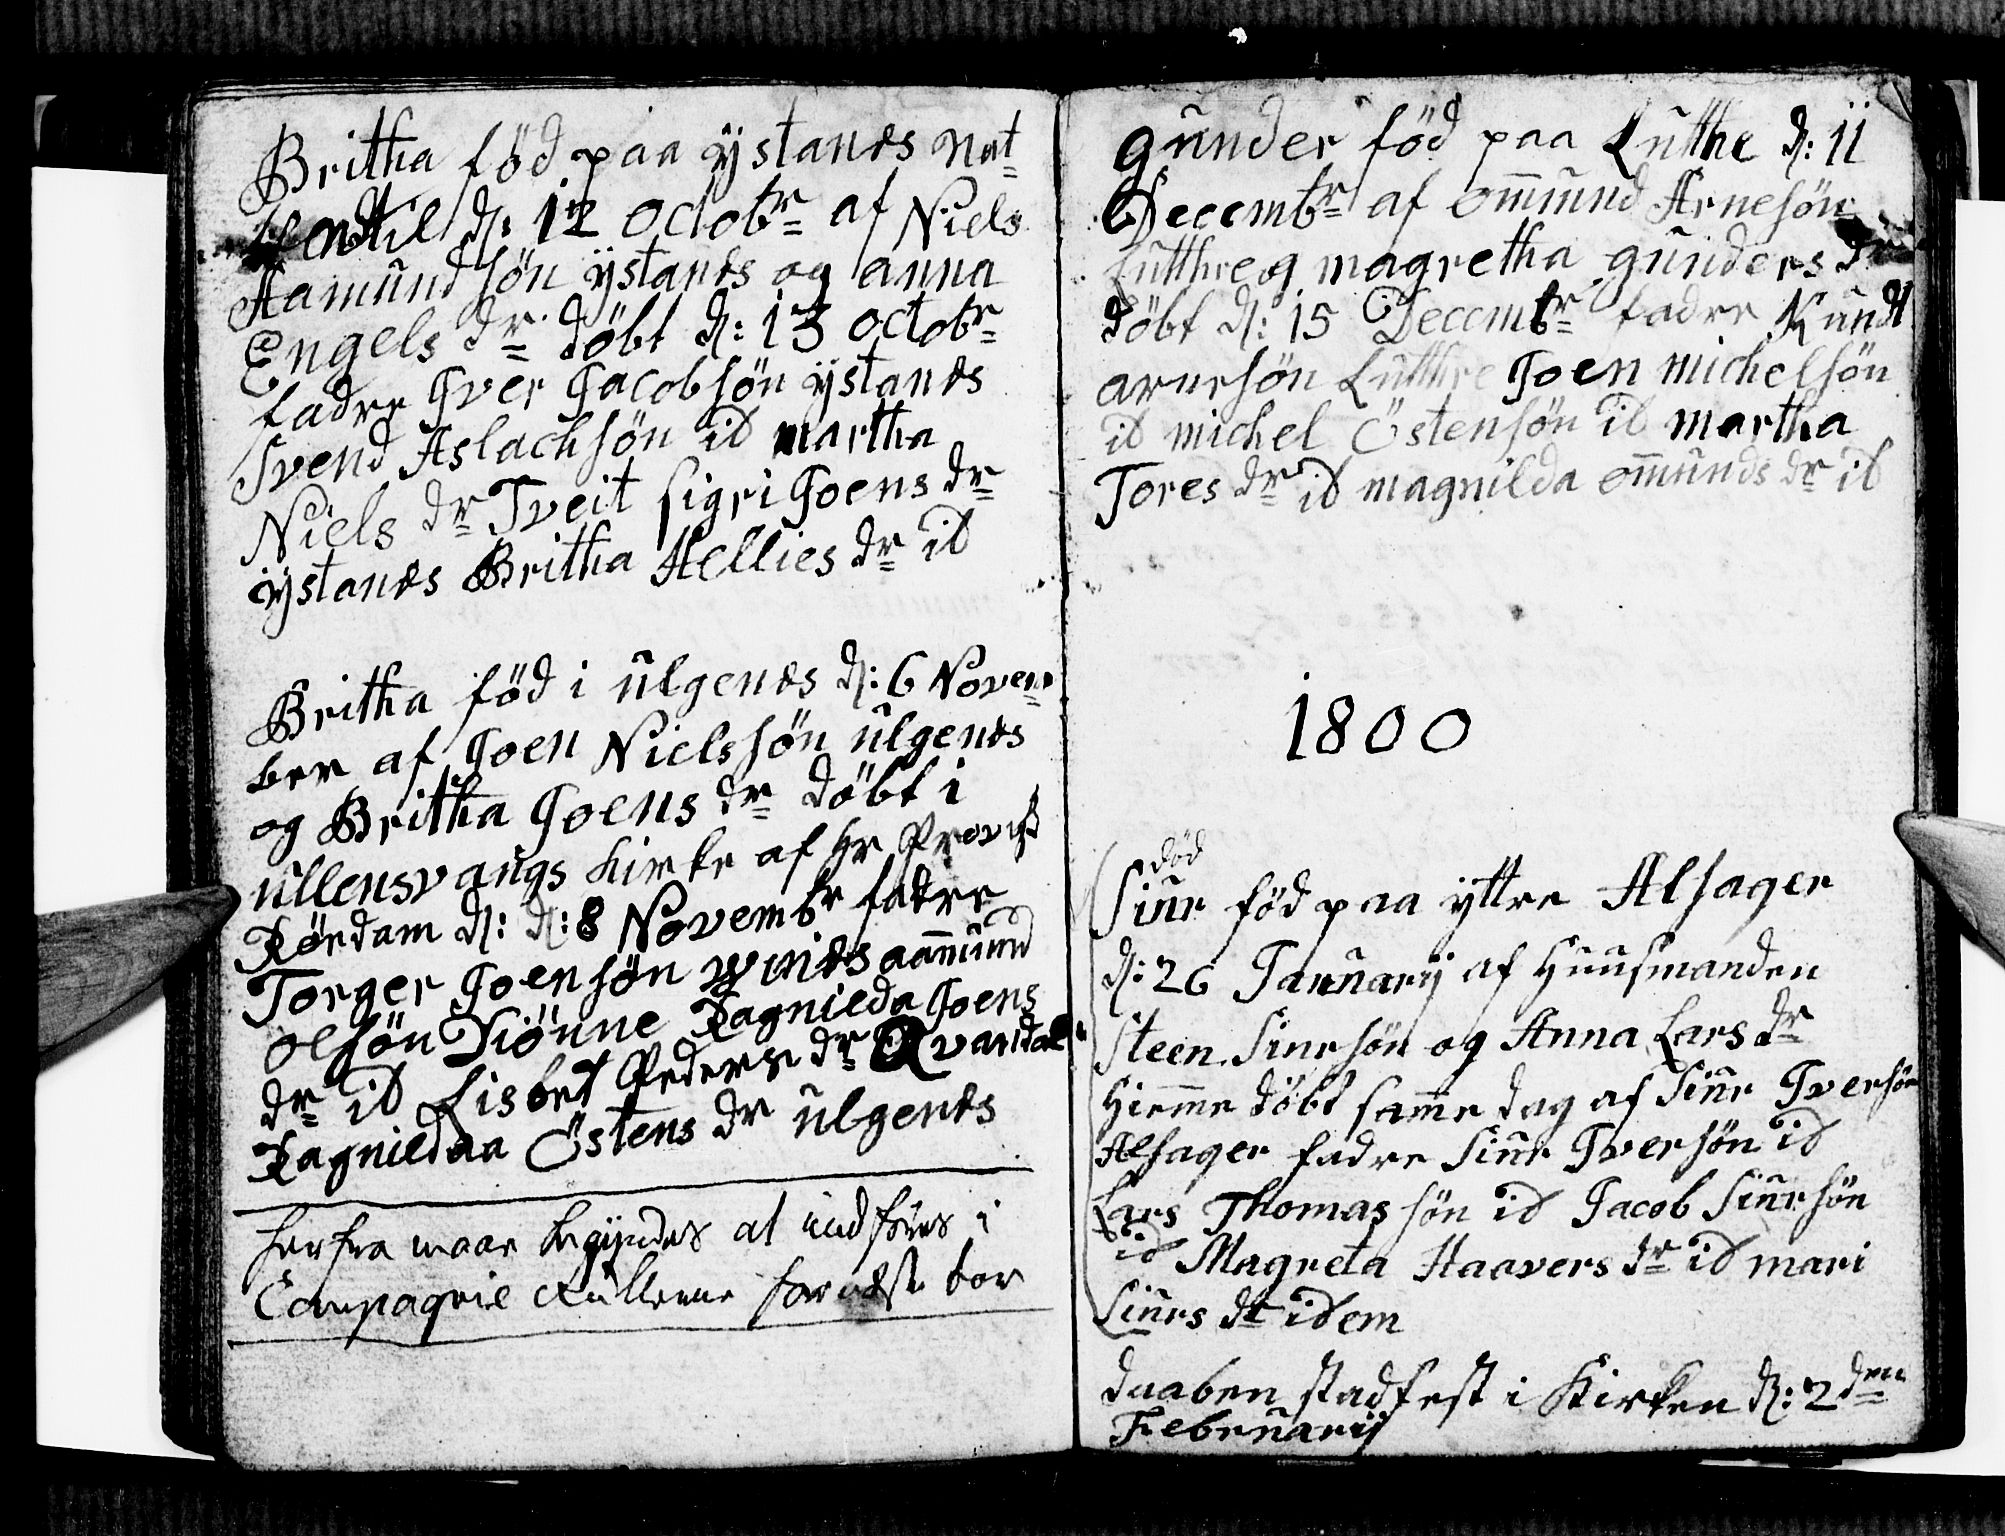 Britha föd paa ÿstanes nat-
til d: 12 octobr af Niels
Aamundsön ÿstanes og anna
Engels dr. döbt d: 13 octobr
fadre Iver Jacobsön ÿstanes
Svend Aslachsön id martha
Niels dr Tveit sigri Joens dr
ÿstanes Britha Hellies dr id
Britha föd i ulgenes d: 6 Novem-
ber af Joen Nielssön ulgenes
og Britha Joens dr döbt i
ullensvangs kirke af Hr Provst
Rördam d: d: 8 Novembr fadre
Torger Joensön Winæs aamund
olsön Diönne Ragnilda Joens
dr id Lisbet Peders dr Qvandal
Ragnildaa Östens dr ulgenes
herfra maae begyndes at indföres i
Compagnie Rullerne for næste tor
gunder föd paa Lutthe d: 11
Decembr af omund Arnesön
Lutthre og magretha gunders dr
döbt d: 15 Decembr fadre Kundt
arnesön Lutthre Joen michelsön
id michel Östensön id martha
Tores dr id magnilda omunds dr id
1800
död
Siur föd paa yttre Alsager
d: 26 Januarij af Huusmanden
Steen Siursön og Anna Lars dr
hiemme döbt samme dag af Siur Iversön
Alsager fadre Siur Iversön id
Lars Thomassön id Jacob Siursön
id Magreta Haavers dr id mari
Siurs dr idem
daaben stadfest i Kirken d: 2den
Februarij